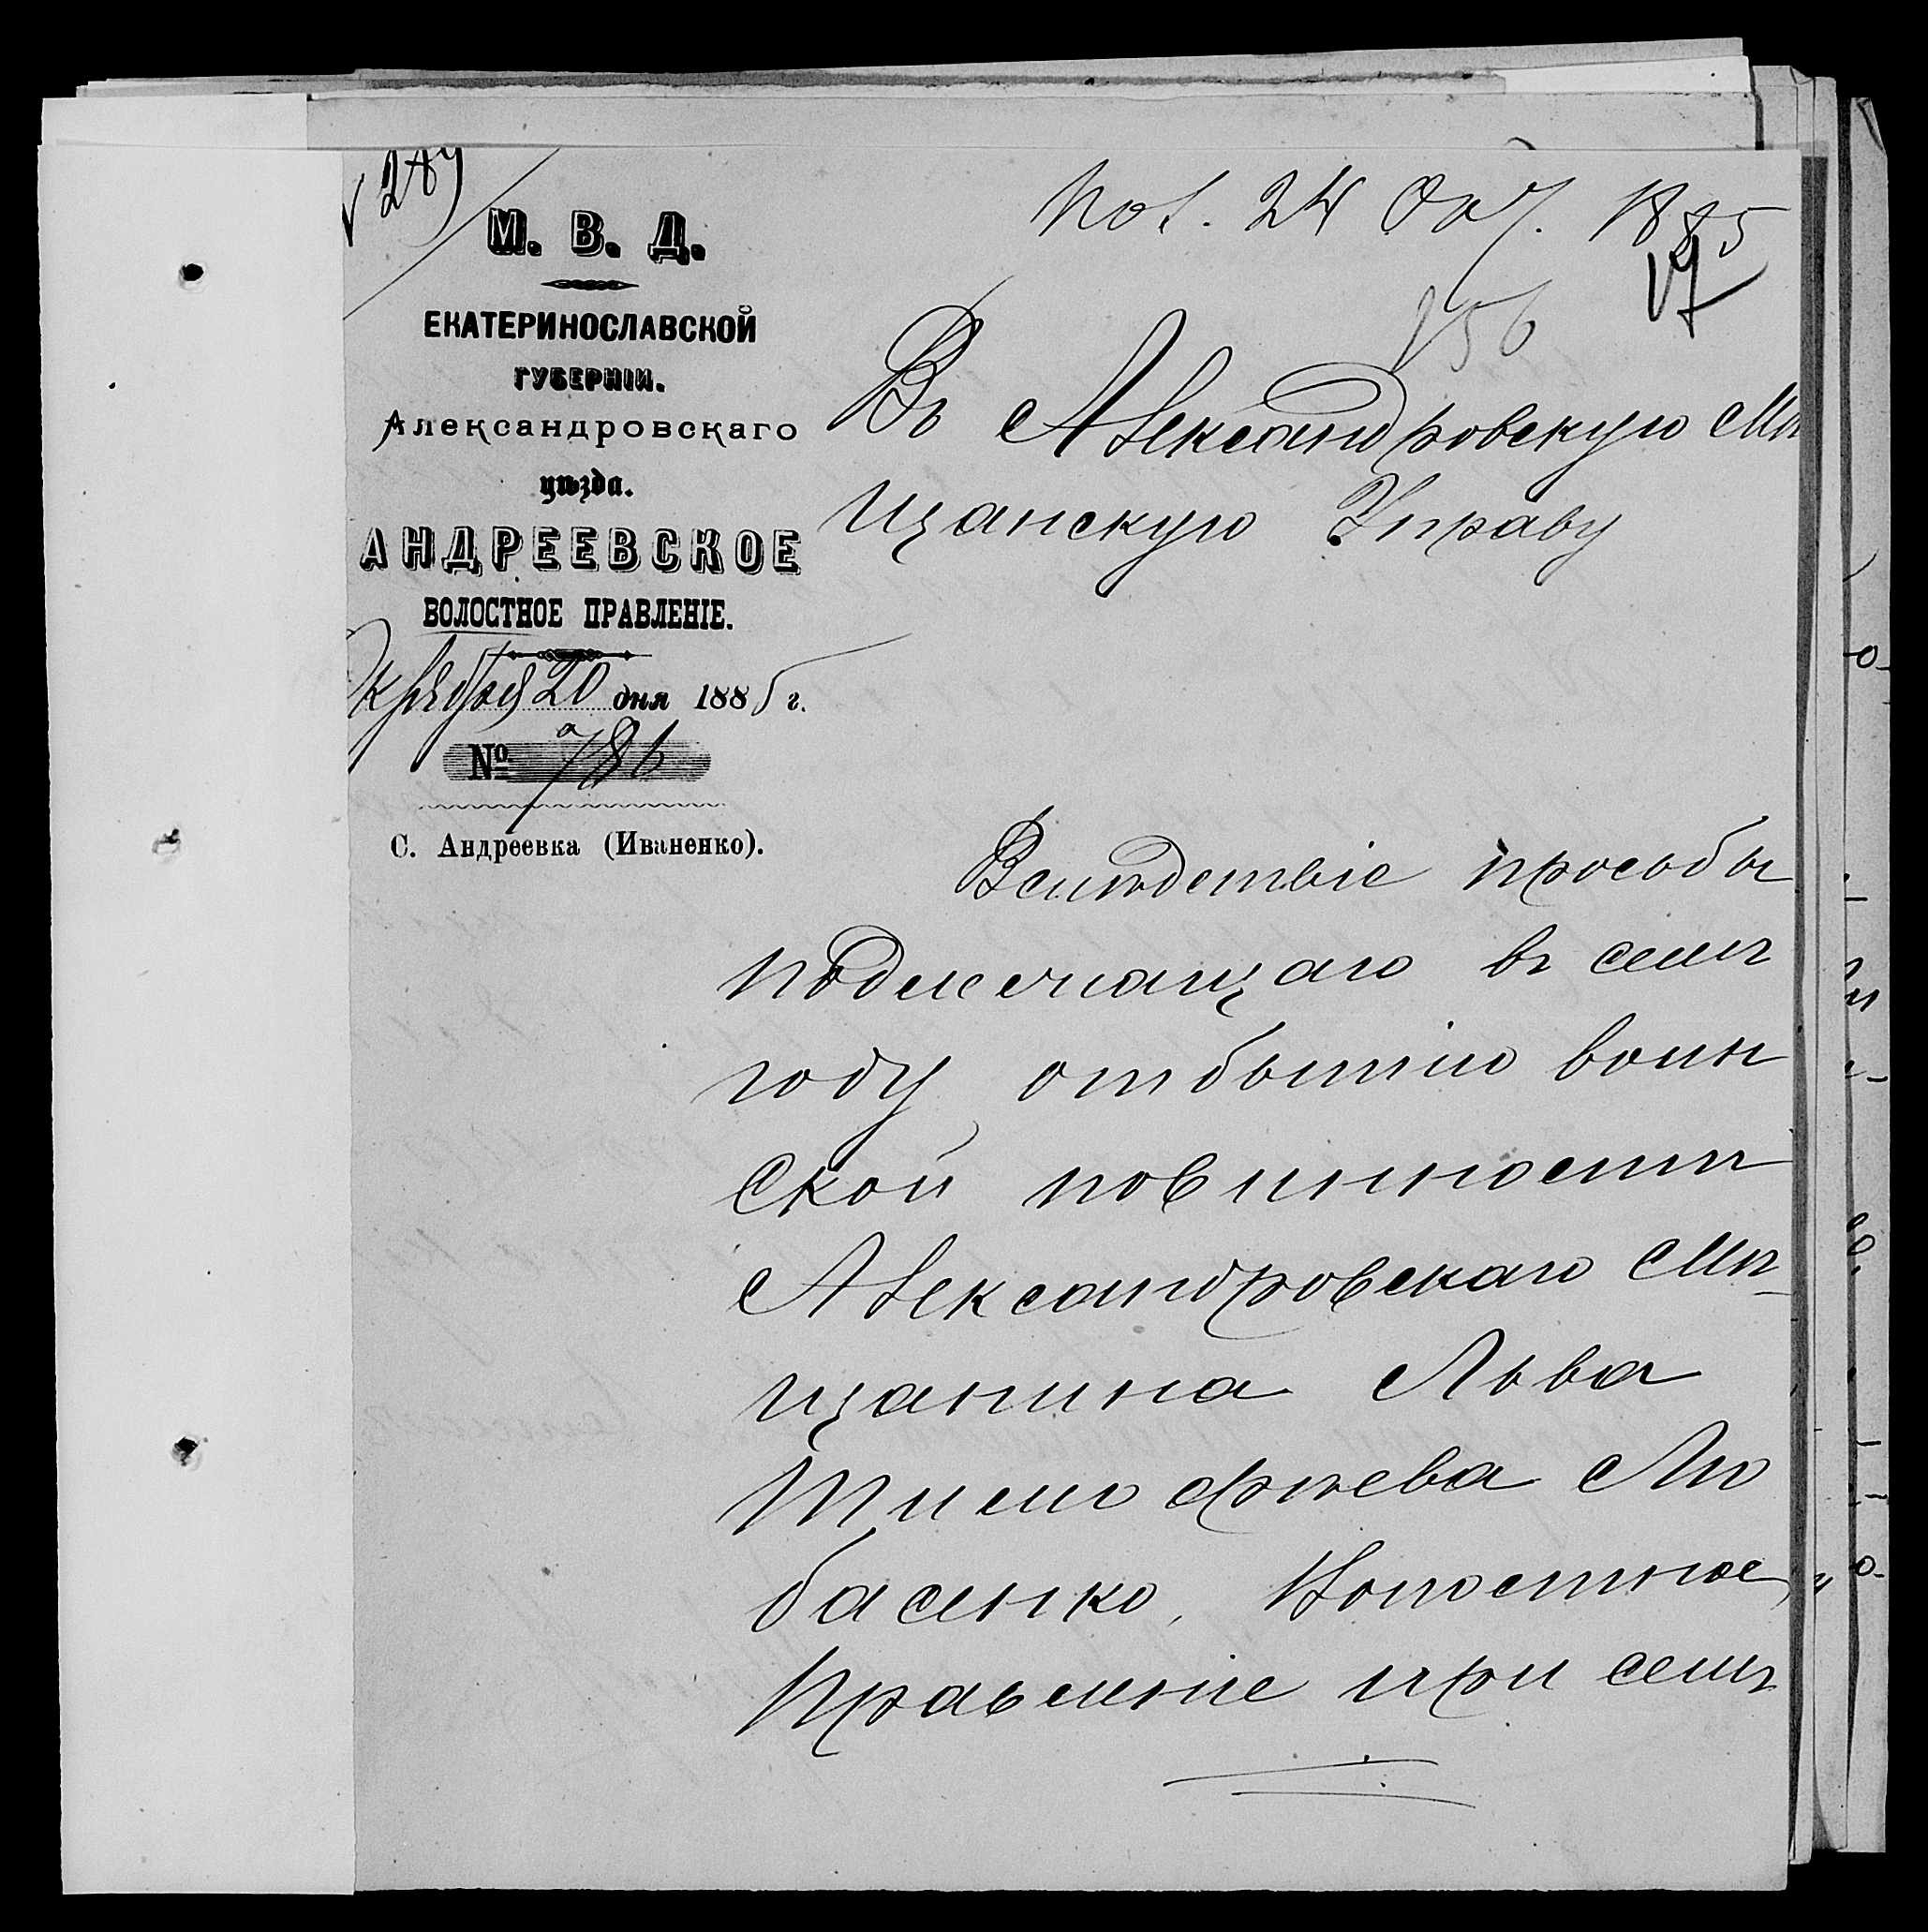 289
М. В. Д.
ЕКАТЕРИНОСЛАВСКОЙ
ГУБЕРНІИ.
Александровскаго
уѣзда.
АНДРЕЕВСКОЕ
ВОЛОСТНОЕ ПРАВЛЕНІЕ.
Октября 20 дня 1885 г.
№ 786
С. Андреевка (Иваненко).
Пол. 24 Окт. 1885
17
156
Въ Александровскую Мѣ
щанскую Управу
Вслѣдствіе просьбы
подлежащаго въ семъ
году отбытію воин
ской повинности
Александровскаго Мѣ-
щанина Льва
Тимофѣева Лю
басенко, Волостное
Правленіе при семъ